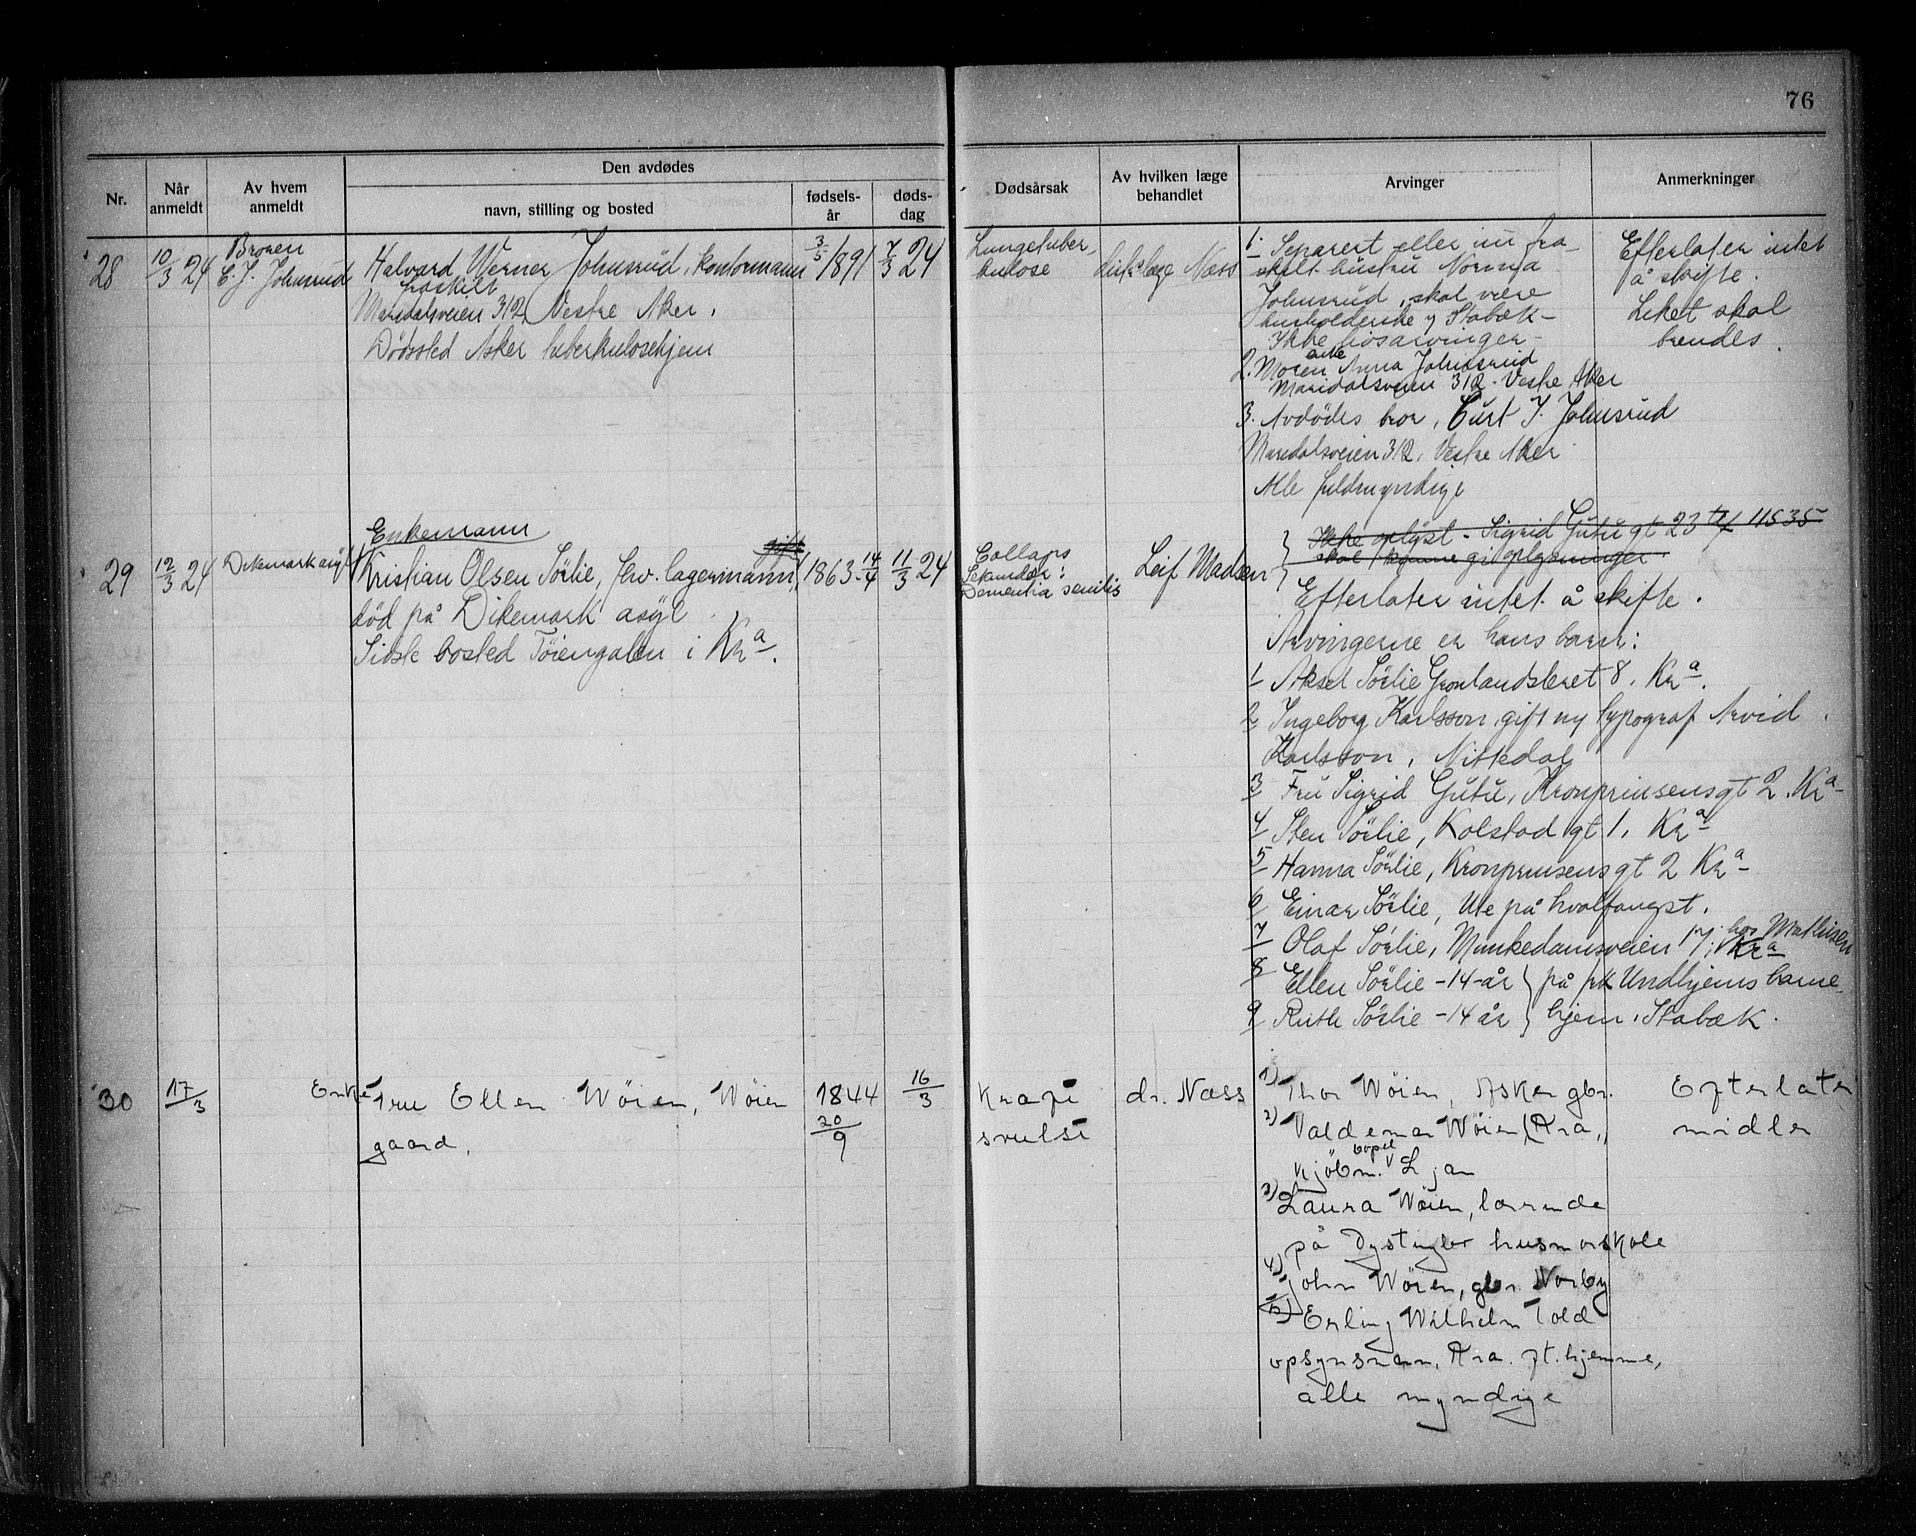 76
Nr.
Når anmeldt
Av hvem anmeldt
Den avdødes
navn, stilling og bosted
fødsels-år
døds-dag
Dødsårsak
Av hvilken læge behandlet
Arvinger
Anmerkninger
28
10/3 24
Broren
C. J. Johnsrud
Halvard Werner Johnsrud, kontormann
fraskilt
Maridalsveien 312, Vestre Aker.
Dødssted Asker tuberkulosehjem
3/5 1891
7/3 24
Lungetuber-
kulose
læge Næss
1. Separert eller nu fra
skilt hustru Norma
Johnsrud, skal være
husholderske Stabæk-
Ikke livsarvinger-
2. Moren enke Anna Johnsrud
Maridalsveien 312 - Vestre Aker
3. Avdødes bror, Curt J. Johnsrud
Maridalsveien 312, Vestre Aker
Alle fuldmyndige
Efterlater intet
å skifte.
Liket skal
brendes.
29
12/3 24
Dikemark asyl
Enkemann
gift
Kristian Olsen Sörlie, fhv. lagermann,
död på Dikemark asyl
Sidste bosted Töiengaten i Kra.
1863 14/4
11/3 24
Collaps
Sekundær:
Dementia senilis
Leif Madsen
Ikke oplyst - Sigrid Gutu gt 23 tlf 11535
skal kunne gi oplysninger
Efterlater intet å skifte.
Arvingerne er hans barn:
1 Aksel Sörlie Grønlandsleret 8. Kra.
2 Ingeborg Karlsson, gift m typograf Arvid
Karlsson, Nittedal
3 Fru Sigrid Gutu, Kronprinsensgt 2. Kra-
4 Sten Sörlie, Kolstadgt 1. Kra-
5 Hanna Sörlie, Kronprinsensgt 2 Kra-
6 Einar Sörlie, Ute på hvalfangst.
7 Olaf Sörlie, Munkedamsveien 17, hos Mathisen
Kra
8 Ellen Sörlie - 14 - år } på Undhjems barne-
9 Ruth Sörlie - 14 år } hjem, Stabæk.
30
17/3
Enke
Frue Ellen Wöien, Wöien
gaard.
1844
20/9
16/3
Kræft
svulst
dr. Næss
1) Thor Wöien, Asker gbr.
2) Valdemar Wöien, Kra,
kjöbm. bopel Ljan
3) Laura Wöien, lærerinde
på husmorskole
4) John Wöien, gbr. Norby
5) Erling Wilhelm Told
opsynsman, Kra. pt. hjemme,
alle myndige
Efterlater
midler